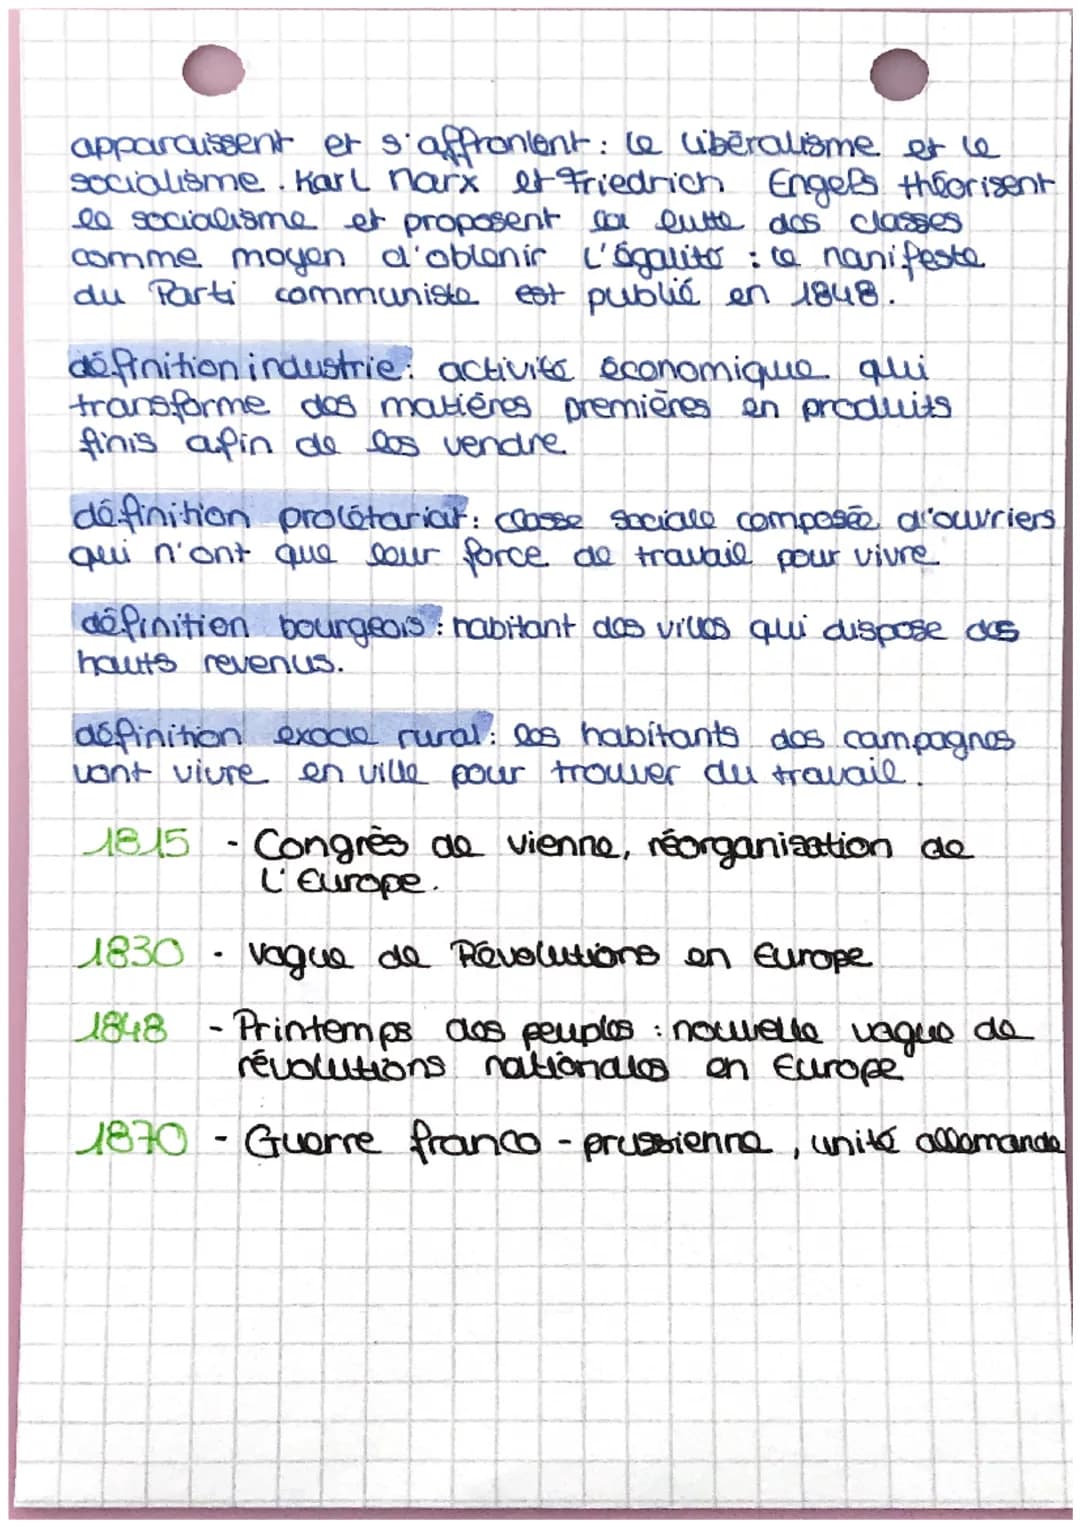 apparaissent et s'affrontent : le libéralisme et le
socialisme. Karl Marx et Friedrich Engels théorisent
le socialisme et proposent la lutte des classes
comme moyen d'obtenir l'égalité : le manifeste
du Parti communiste est publié en 1848.
définition industrie : activité économique qui
transforme des matières premières en produits
finis afin de les vendre.
définition prolétariat : classe sociale composée d'ouvriers
qui n'ont que leur force de travail pour vivre.
définition bourgeois : habitant des villes qui dispose des
hauts revenus.
définition exode rural : les habitants des campagnes
vont vivre en ville pour trouver du travail.
1815 - Congrès de vienne, réorganisation de
l'Europe.
1830 - vague de Révolutions en Europe
1848 - Printemps des peuples : nouvelle vague de
révolutions nationales en Europe
1870 - Guerre franco-prussienne, unité allemande